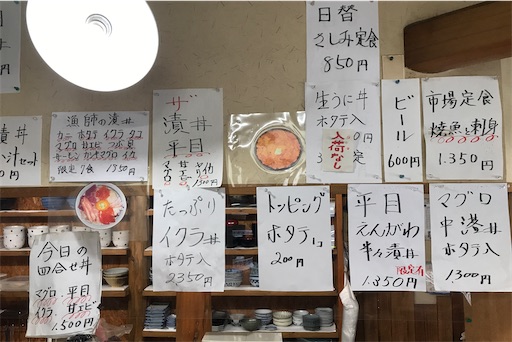 日替
さしみ定食
850円
漁師の漬丼
カニ ホタテ イクラ タコ
限定7食 1350円
ザ
漬丼
平目
マグロ
甘エビ
1,300円
生うに丼
ホタテ入
入荷なし
定
ビール
600円
市場定食
焼魚と刺身
1.350円
漬丼
汁セット
円
たっぷり
イクラ丼
ホタテ入
2350円
トッピング
ホタテ1コ
200円
平目
えんがわ
半々漬丼
限定有
1.350円
マグロ
中漬丼
ホタテ入
1,300円
今日の
四合せ丼
マグロ 平目
イクラ 甘エビ
1.500円